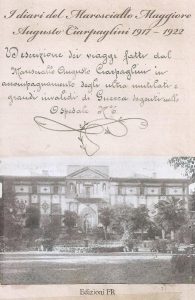 I diari del Maresciallo Maggiore
Augusto Ciarpaglini 1917 - 1922
Descrizione dei viaggi fatti dal
Maresciallo Augusto Ciarpaglini in
accompagnamento degli ultra mutilati e
grandi invalidi di Guerra degenti nello
Ospedale
Edizioni FR